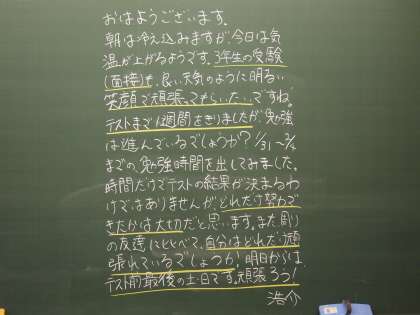 おはようございます。
朝は冷え込みますが、今日は気
温が上がるようです。3年生の受験
(面接)も、良い天気のように明るい
笑顔で頑張ってもらいたいですね。
テストまで1週間をきりましたが、勉強
は進んでいるでしょうか？1/31~2/4
までの、勉強時間を出してみました。
時間だけでテストの結果が決まるわ
けではありませんが、どれだけ努力で
きたかは大切だと思います。また、周り
の友達にくらべて、自分はどれだけ頑
張れているでしょうか！明日からは
テスト前最後の土・日です。頑張ろう！
浩介